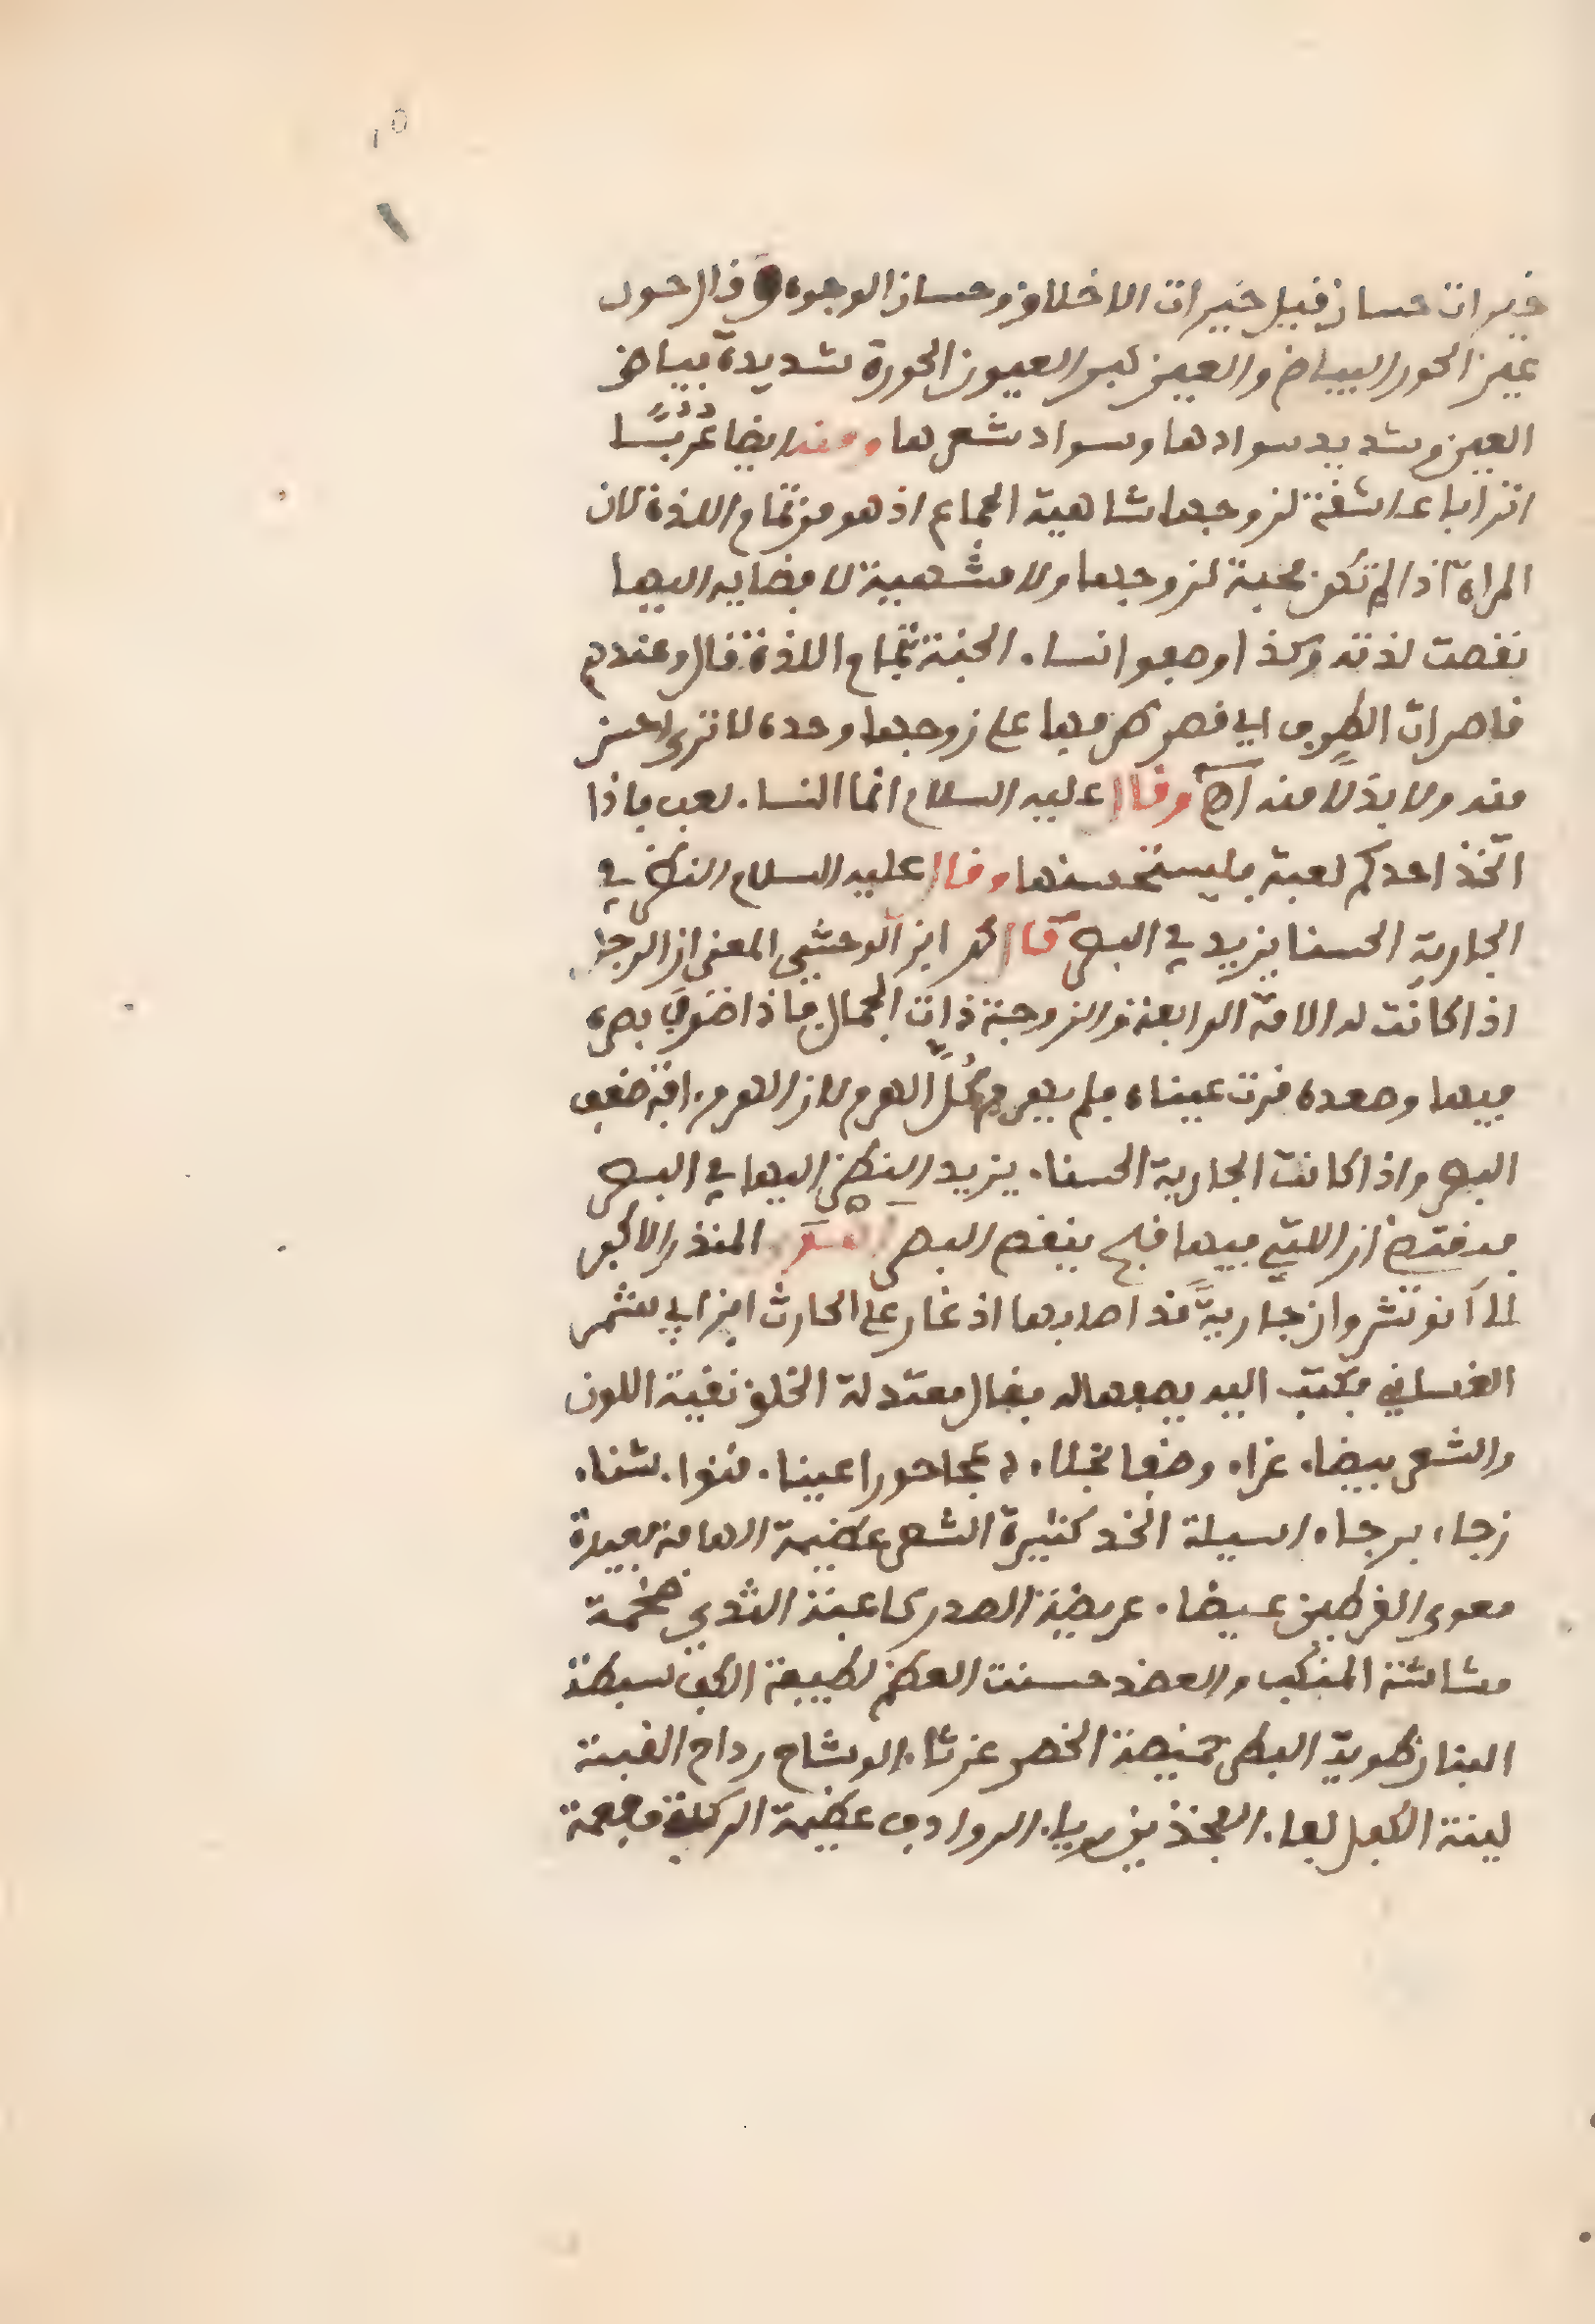 خيرات حسان قيل خيرات الاخلاق وحسان الوجوه وقال حور
عين الحور البياض والعين كبر العيون الحورة شديدة بياض
العين وشديد سوادها وسواد شعرها ومنه ايضا عُرُبًا
اترابا عاشقة لزوجها شاهية الجماع اذ هو من تمام اللذة لان
المراة اذا لم تكن محبة لزوجها ولا مشهية لافضايه اليها
نقصت لذته وكذا وصفوا نساء الجنة بتمام اللذة فقال وعندهم
قاصرات الطرف اي قصر طرفها على زوجها وحده لا ترى احسن
منه ولا بدلا منه اهـ وقال عليه السلام انما النساء لعب فاذا
اتخذ احدكم لعبة فليستحسنها وقال عليه السلام النظر في
الجارية الحسنا يزيد في البصر قال محمد ابن الوحشي المعنى ان الرجل
اذا كانت له الامة الرايعة والزوجة ذات الجمال فاذا صوب بصره
فيها وصعده قرت عيناه فلم يهرم كل الهرم لان الهرم افة ضعف
البصر واذا كانت الجارية الحسناء يزيد النظر اليها في البصر
فمقتضاه ان اللتي فيها قبح ينقص البصر المنذر الاكبر
الى انو نشروان جارية قد اصابها اذ غار على الحارث ابن ابي شمر
الغساني فكتب اليه يصفها له فقال معتدلة الخلق نقية اللون
والشعر بيضاء غراء وضفا نجلاء دعجا حورا عيناء قنواء شماء
زجاء برجاء اسيلة الخد كثيرة الشعر عظيمة الهامة بعيدة
مهوى القرطين عيضاء عريضة الصدر كاعبة الثدي ضخمة
مشاشة المنكب والعضد حسنت العظم لطيفة الكف سبطة
البنان طوية البطن خميصة الخصر غرثاء الوشاح رداح القبة
لينة الكفل لفاء الفخذين رياء الروادف عظيمة الركبة مفعمة